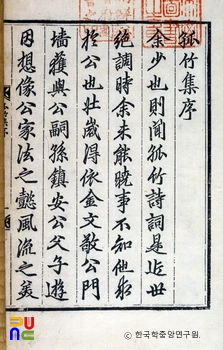 孤竹集序
余少也則聞孤竹詩詞是近世
絶調時余未能曉事不知他求
於公也壯歲得依金文敬公門
墻獲與公嗣孫鎭安公父子遊
因想像公家法之懿風流之美
ⓒ 한국학중앙연구원